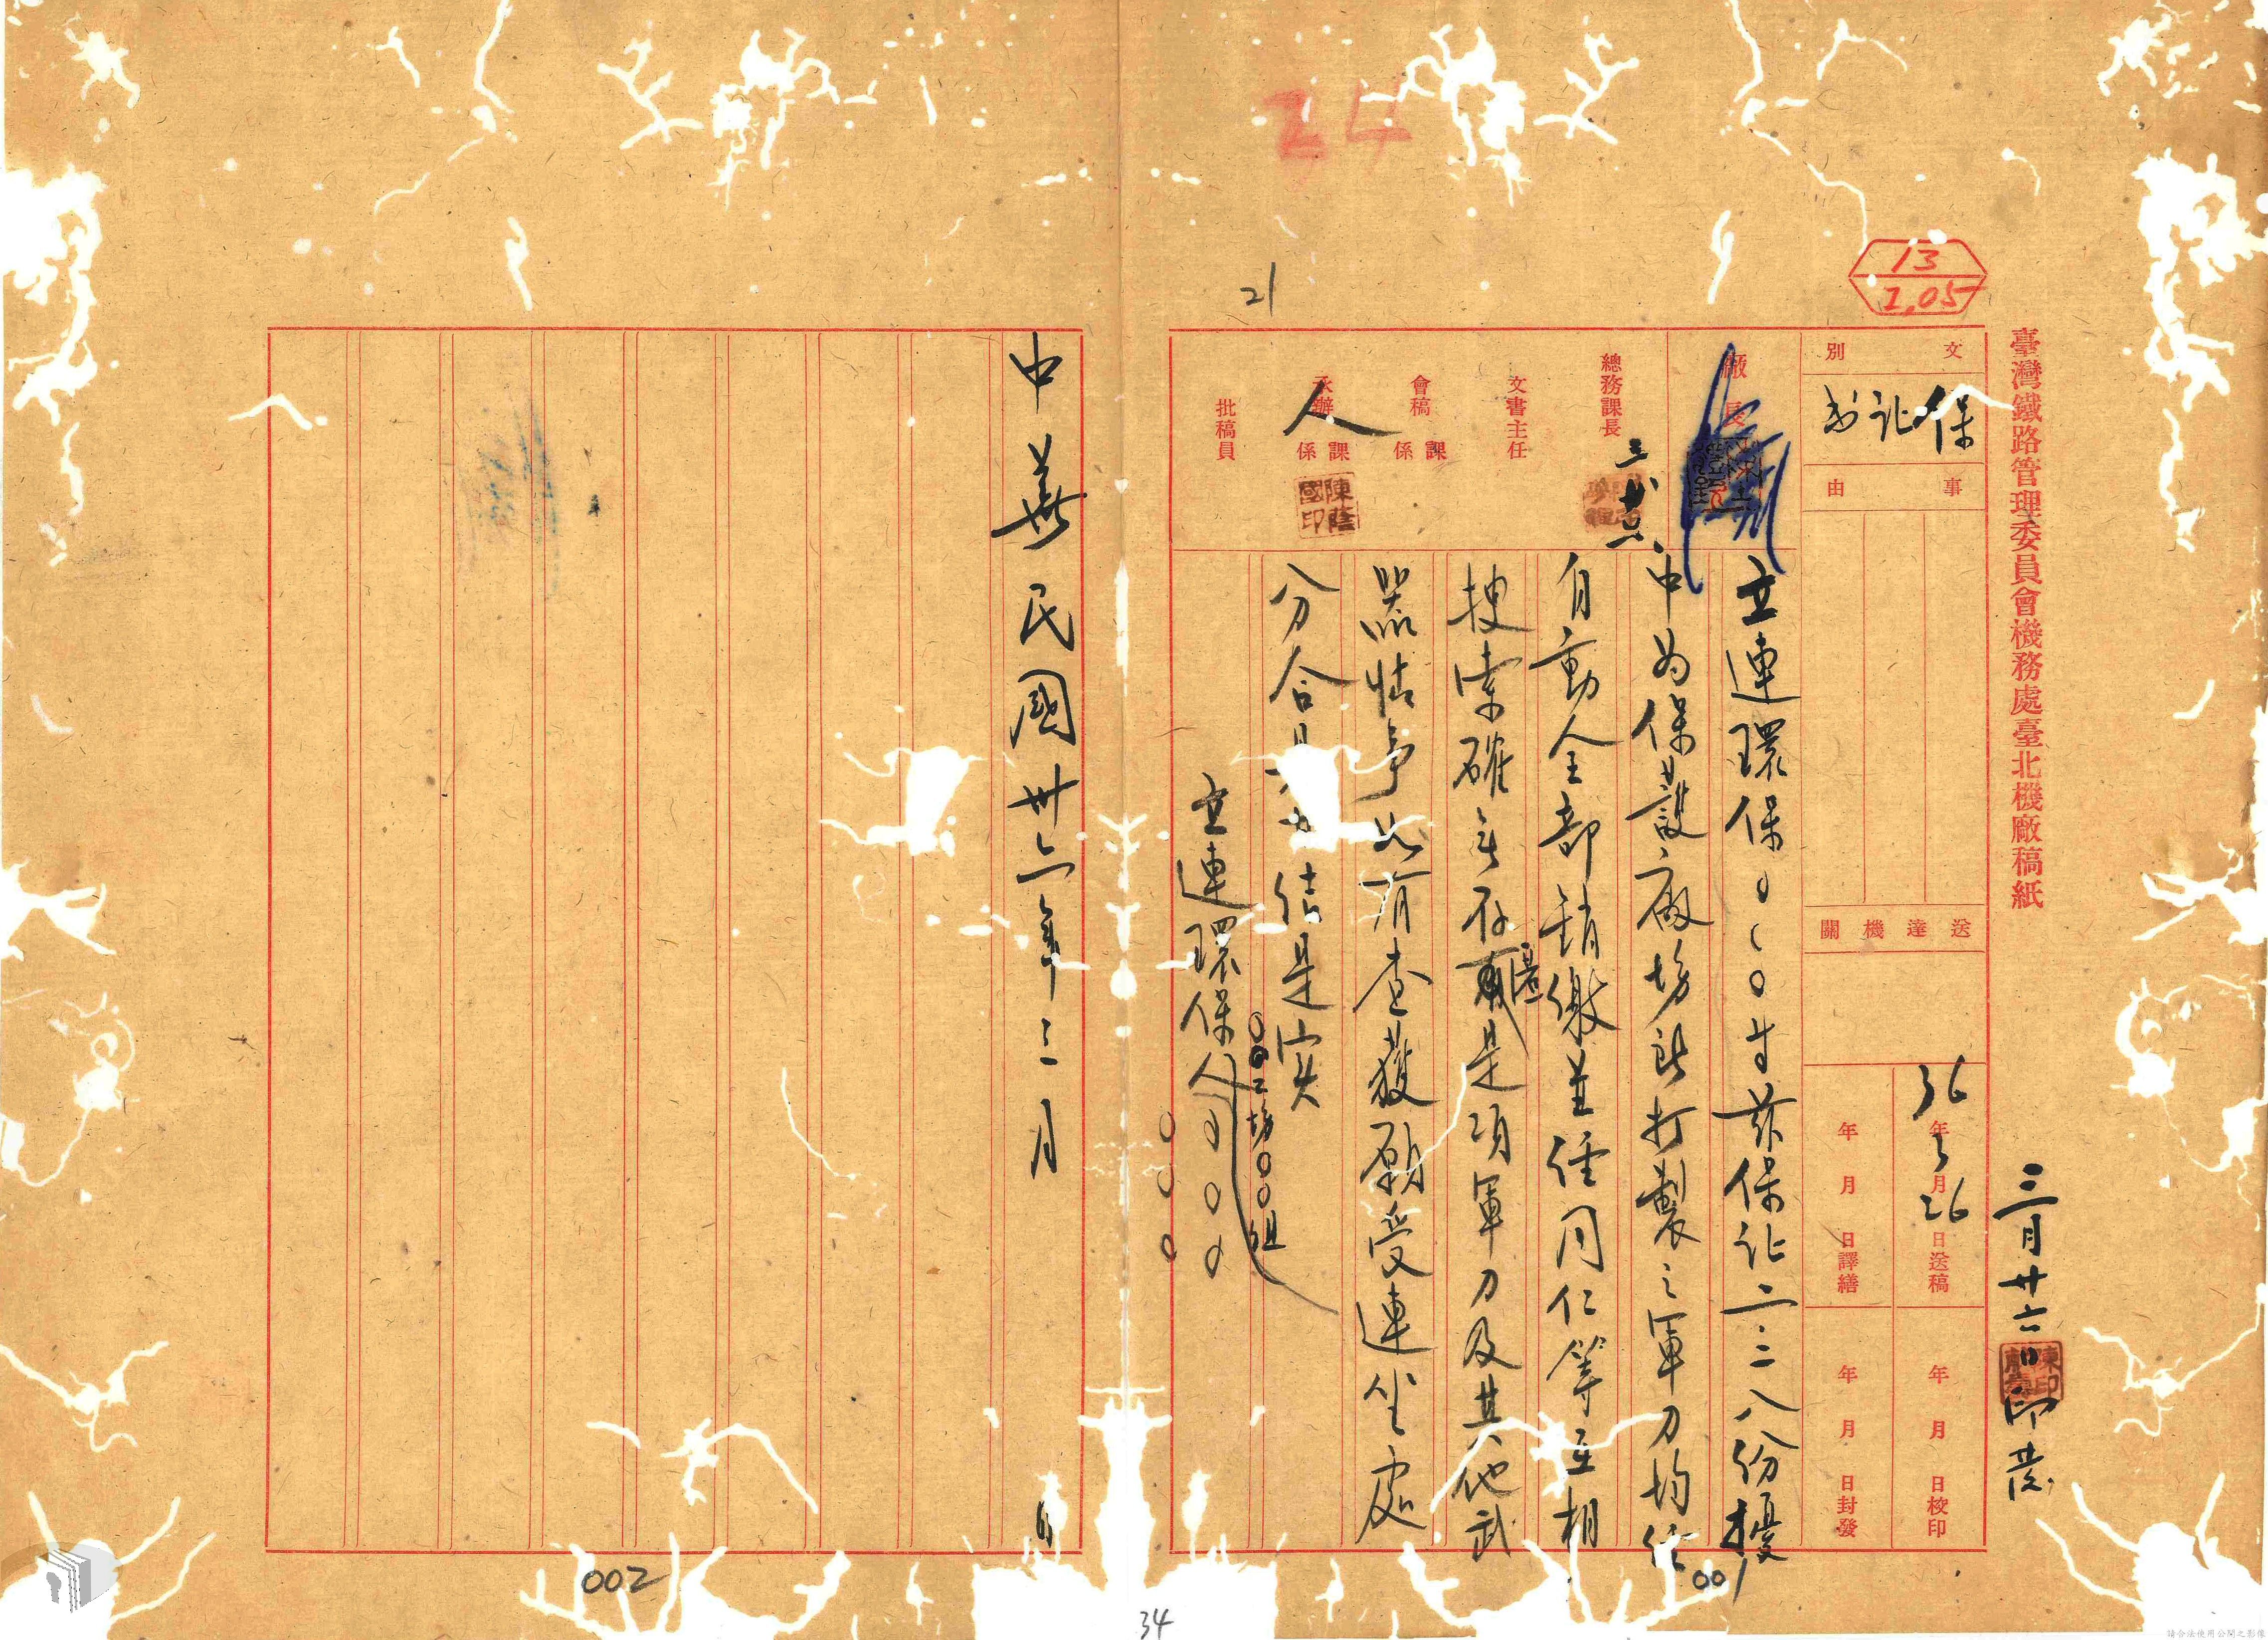 24
21
13
2,05
臺灣鐵路管理委員會機務處臺北機廠稿紙
三月廿六日印發
文別
保証書
事由
送達機關
36年3月26日送稿
年月日譯繕
年月日校印
年月日封發
廠長
總務課長
三廿六
文書主任
會稿
課係
承辦
人
課係
陳蔭國印
批稿員
立連環保人〇〇〇等茲保証二二八份擾
中為保護廠場所打製之軍刀均經
自動全部銷繳並經同仁等互相
搜索確無存匿是項軍刀及其他武
器情事如有查獲願受連坐處
分合具 結是實
〇〇工場〇〇組
立連環保人〇〇〇
〇〇〇
中華民國卅六年三月
日
001
002
34
請合法使用公開之影像